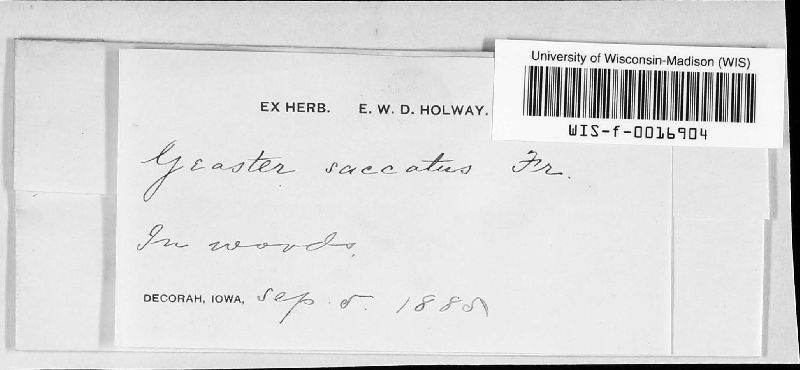 University of Wisconsin-Madison (WIS)
WIS-f-0016904
EX HERB. E. W. D. HOLWAY.
Geaster saccatus Fr.
In woods.
DECORAH, IOWA, Sep. 5. 1885